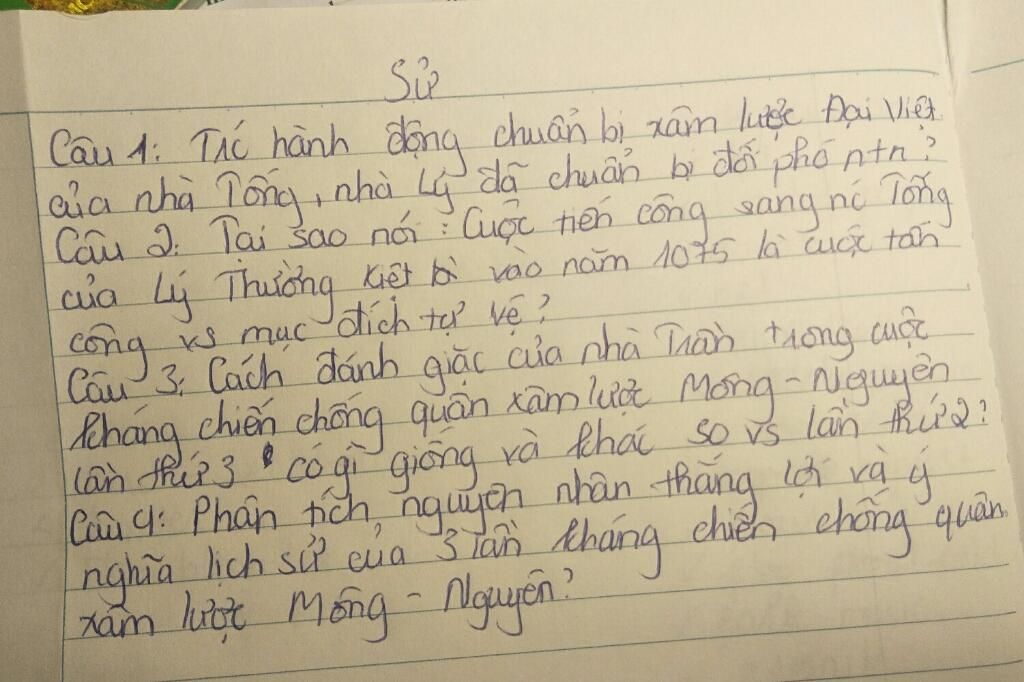 Sử
Câu 1: Trc hành động chuẩn bị xâm lược Đại Việt
của nhà Tống, nhà Lý đã chuẩn bị đối phó ntn?
Câu 2: Tại sao nói: Cuộc tiến công sang nc Tống
của Lý Thường Kiệt vào năm 1075 là cuộc tấn
công vs mục đích tự vệ?
Câu 3: Cách đánh giặc của nhà Trần trong cuộc
kháng chiến chống quân xâm lược Mông - Nguyên
lần thứ 3 có gì giống và khác so vs lần thứ 2?
Câu 4: Phân tích nguyên nhân thắng lợi và ý
nghĩa lịch sử của 3 lần kháng chiến chống quân
xâm lược Mông - Nguyên?